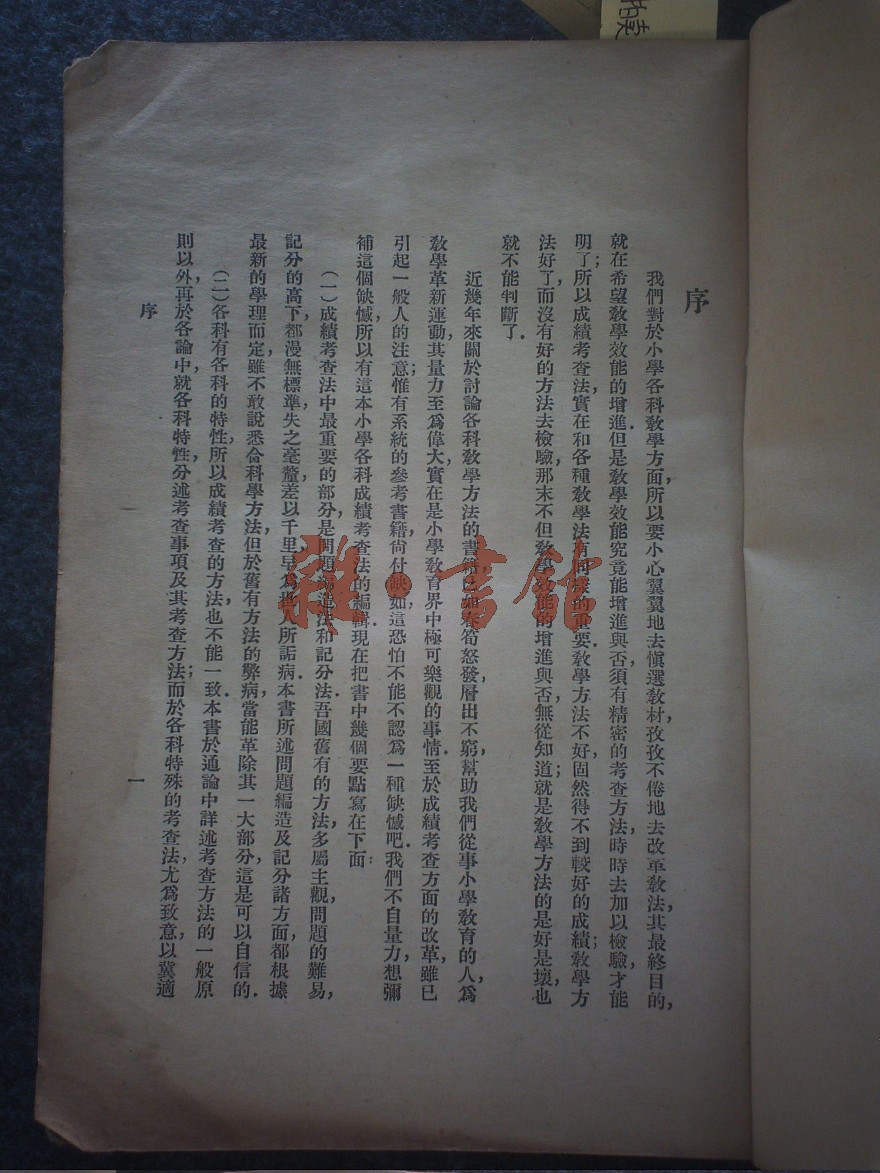 序
我們對於小學各科教學方面,所以要小心翼翼地去愼選教材,孜孜不倦地去改革教法,其最終目的,
就在希望教學效能的增進.但是教學效能究竟能增進與否,須有精密的考查方法,時時去加以檢驗,才能
明了;所以成績考查法,實在和各種教學法有同樣的重要.教學方法不好,固然得不到較好的成績;教學方
法好了,而沒有好的方法去檢驗,那末不但教學效能的增進與否,無從知道;就是教學方法的是好是壞,也
就不能判斷了.
近幾年來關於討論各科教學方法的書籍,已如春筍怒發,層出不窮,幫助我們從事小學教育的人,爲
教學革新運動,其量力至爲偉大,實在是小學教育界中極可樂觀的事情.至於成績考查方面的改革,雖已
引起一般人的注意;惟有系統的參考書籍,尙付缺如,這恐怕不能不認爲一種缺憾吧.我們不自量力,想彌
補這個缺憾,所以有這本小學各科成績考查法的編輯.現在把書中幾個要點寫在下面:
(一)成績考查法中最重要的部分,是問題編造法和記分法.吾國舊有的方法,多屬主觀,問題的難易,
記分的高下,都漫無標準,失之毫釐,差以千里,早爲世人所詬病.本書所述問題編造及記分諸方面,都根據
最新的學理而定,雖不敢說悉合科學方法,但於舊有方法的弊病,當能革除其一大部分,這是可以自信的.
(二)各科有各科的特性,所以成績考查的方法也不能一致.本書於通論中詳述考查方法的一般原
則以外,再於各論中,就各科特性,分述考查事項及其考查方法;而於各科特殊的考查法,尤爲致意,以冀適
序
一
雜·書館